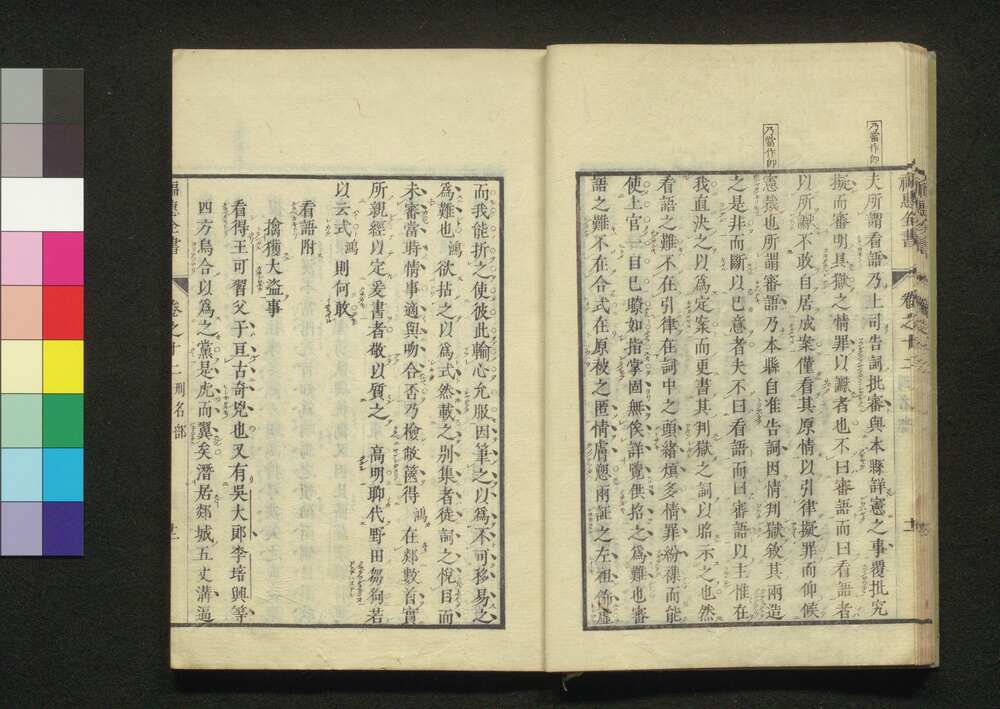 乃當作即
乃當作即
福惠全書 卷之十二
夫所謂看語乃上司告詞批審與本縣詳憲之事覆批究
擬而審明具獄之情罪以讞者也不曰審語而曰看語者
以所讞不敢自居成案僅看其原情以引律擬罪而仰候
憲裁也所謂審語乃本縣自准告詞因情判獄敘其兩造
之是非而斷以巳意者夫不曰看語而曰審語以主惟在
我直決之以爲定案而更書其判獄之詞以昭示之也然
看語之難不在引律在詞中之頭緒煩多情罪紛雜而能
使上官一目巳瞭如指掌固無俟詳覽供招之爲難也審
語之難不在合式在原被之匿情膚愬兩証之左袒偷虛
而我能折之使彼此輸心允服因筆之以爲不可移易之
爲難也鴻欲拈之以爲式然載之别集者徒詞之悅目而
未審當時情事適與吻合否乃檢敝篋得鴻在郯數首實
所親經以定爰書者敬以質之高明聊代野田芻狗若
以云式鴻則何敢
看語附
擒獲大盜事
看得王可習父于亘古奇兇也又有吳大郎李培興等
四方烏合以爲之黨是虎而翼矣潛居郯城五丈溝逼
福惠全書 卷之十二 刑名部